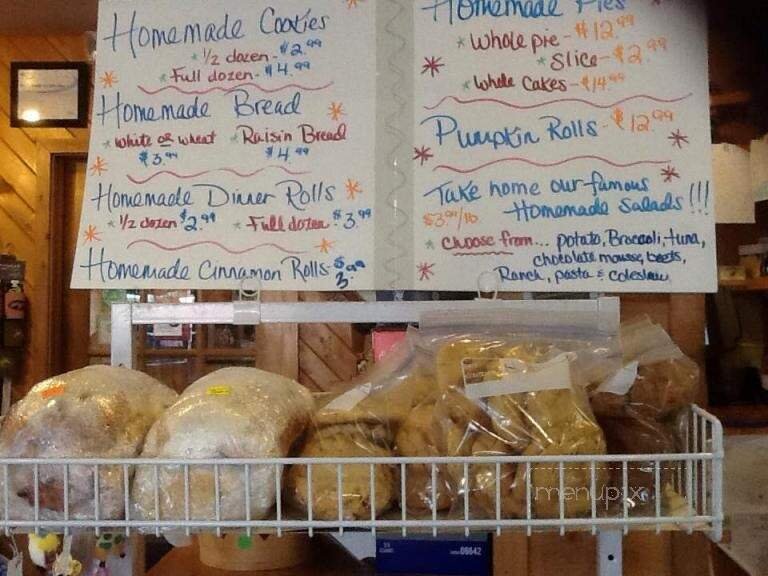 Homemade Cookies
* 1/2 dozen - $2.99
* Full dozen - $4.99
Homemade Bread
* white or wheat * Raisin Bread
$3.99 $4.99
Homemade Dinner Rolls
* 1/2 dozen $2.99 * Full dozen $3.99
Homemade Cinnamon Rolls $3.99
Homemade Pies
* Whole pie - $12.99
* Slice - $2.99
* Whole Cakes - $14.99
Pumpkin Rolls - $12.99
Take home our famous
$3.99/lb Homemade Salads!!!
* Choose from... potato, Broccoli, tuna,
chocolate mousse, beets,
Ranch, pasta & coleslaw
menupix